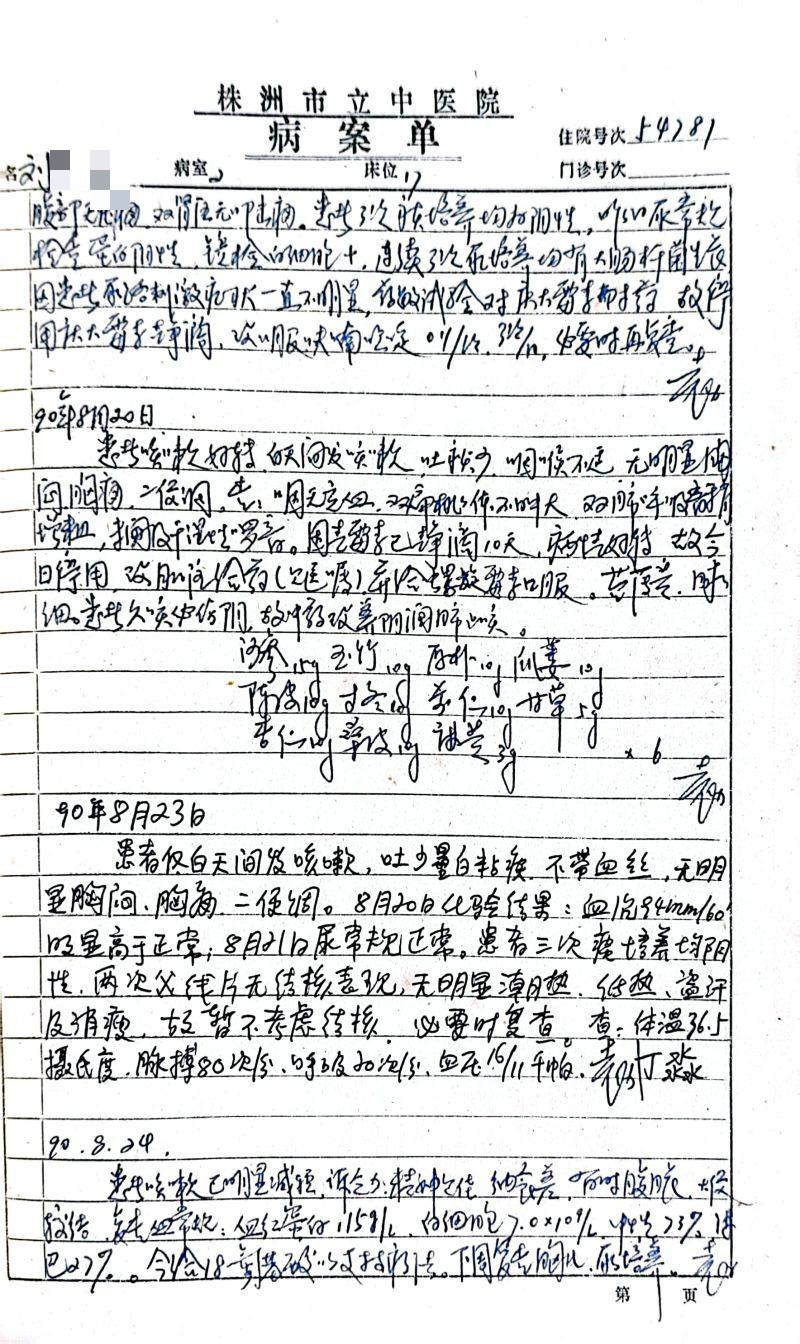 株洲市立中医院
病案单
住院号次 54781
名 刘 病室 2 床位 17 门诊号次
腹部无压痛，双肾区无叩击痛。患者3次痰培养均为阴性，昨日尿常规
检查蛋白阴性，镜检白细胞+，连续3次尿培养均有大肠杆菌生长
因患者尿路刺激症状一直不明显，药敏试验对庆大霉素耐药 故停
用庆大霉素静滴，改服呋喃 必要时再复查。
90年8月20日
患者咳嗽好转 白天间发咳嗽 吐痰少 咽喉不适 无明显胸
闷胸痛，二便调，查：咽无充血，双扁桃体不肿大 双肺呼吸音稍
增粗，未闻及干湿性啰音。因青霉素已静滴10天，病情好转 故今
日停用，改肌注给药 并给螺旋霉素口服。苔薄黄，脉
细。患者久咳必伤阴，故中药改养阴润肺止咳。
沙参15g 玉竹10g 厚朴10g 瓜蒌10g
陈皮10g 寸冬10g 10g 甘草5g
杏仁10g 桑皮10g 3g ×6
90年8月23日
患者仅白天间发咳嗽，吐少量白粘痰 不带血丝，无明
显胸闷、胸痛 二便调。8月20日化验结果：血沉94mm/60'
明显高于正常；8月21日尿常规正常。患者三次痰培养均阴
性，两次X线片无结核表现，无明显潮热、低热、盗汗
及消瘦，故暂不考虑结核，必要时复查。查：体温36.5
摄氏度，脉搏80次/分，呼吸20次/分，血压16/11千帕。
90.8.24.
患者咳嗽已明显减轻，诉乏力 精神欠佳 纳食差，有时腹胀，大便
较结，复查血常规：血红蛋白115g/L，白细胞7.0×10⁹/L 中性73% 淋
巴27%。今给18 支持疗法。下周复查胸片，尿培养。
第 页